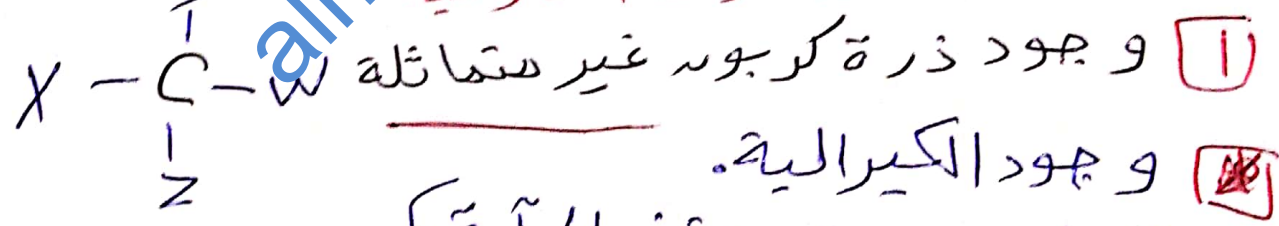 1 وجود ذرة كربون غير متماثلة
X – C – W
Z
وجود الكيرالية.